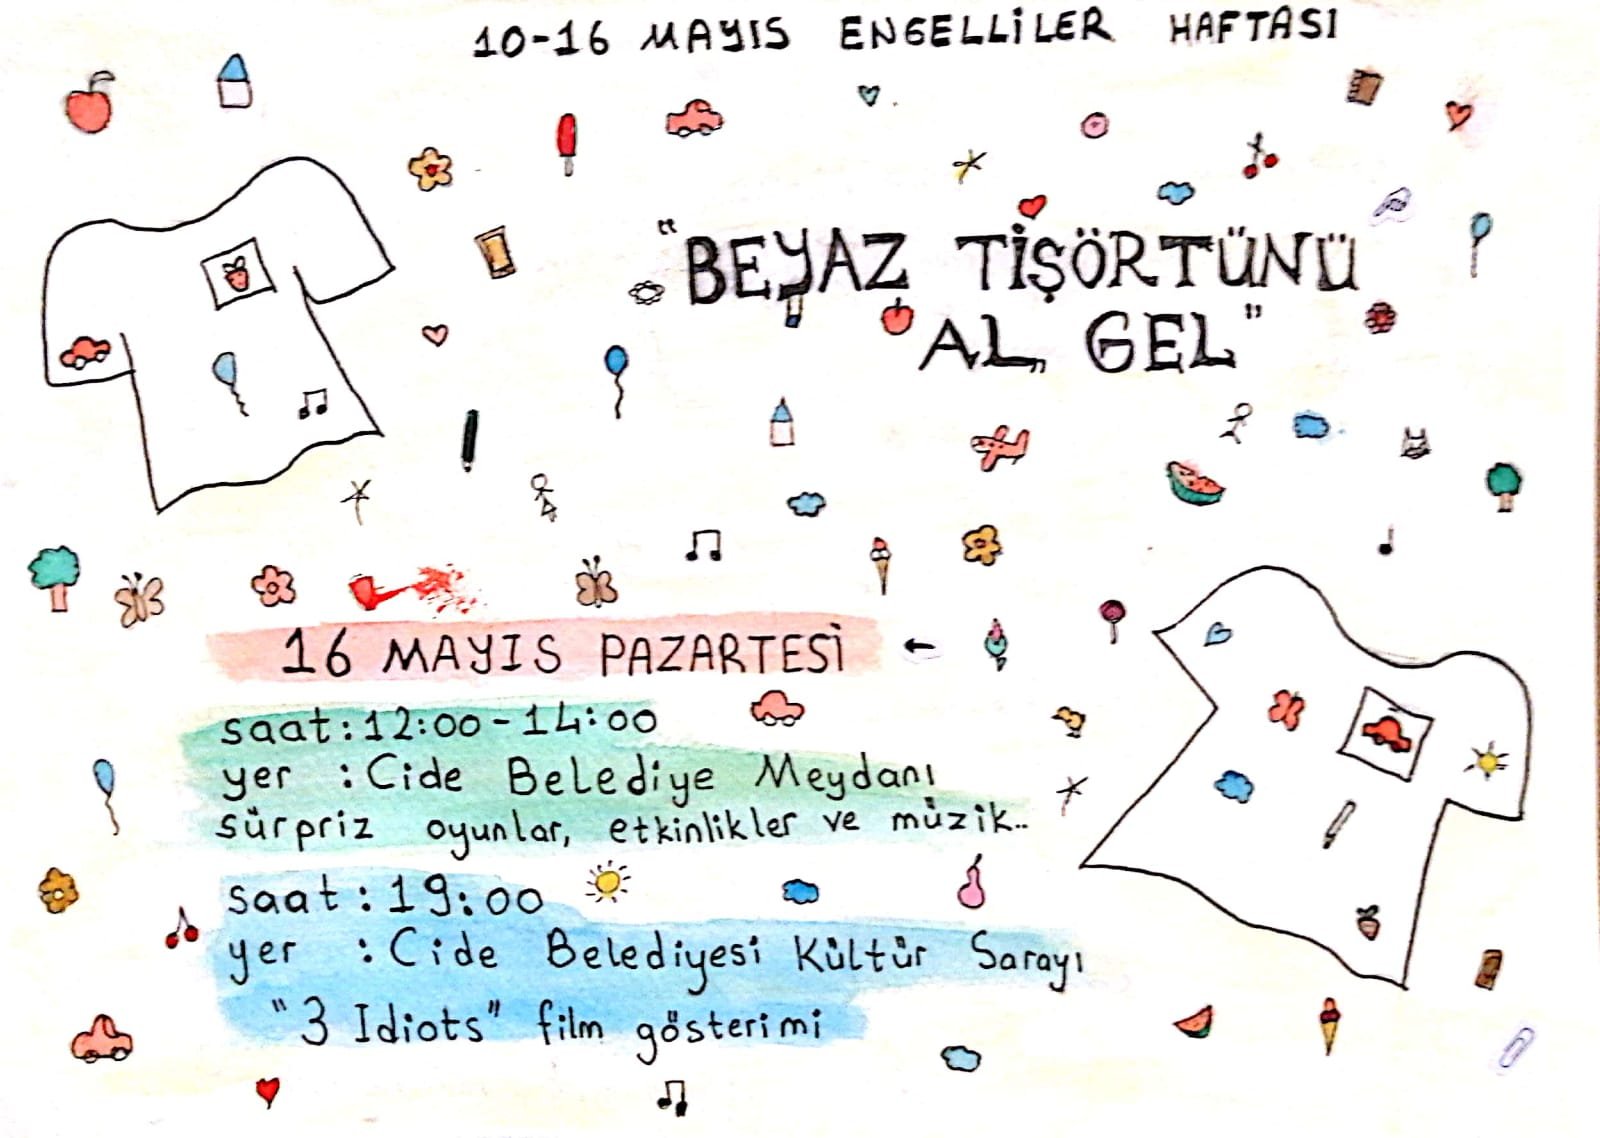 10-16 MAYIS ENGELLİLER HAFTASI
"BEYAZ TİŞÖRTÜNÜ
AL, GEL"
16 MAYIS PAZARTESİ
saat:12:00-14:00
yer :Cide Belediye Meydanı
sürpriz oyunlar, etkinlikler ve müzik..
saat:19:00
yer :Cide Belediyesi Kültür Sarayı
"3 Idiots" film gösterimi